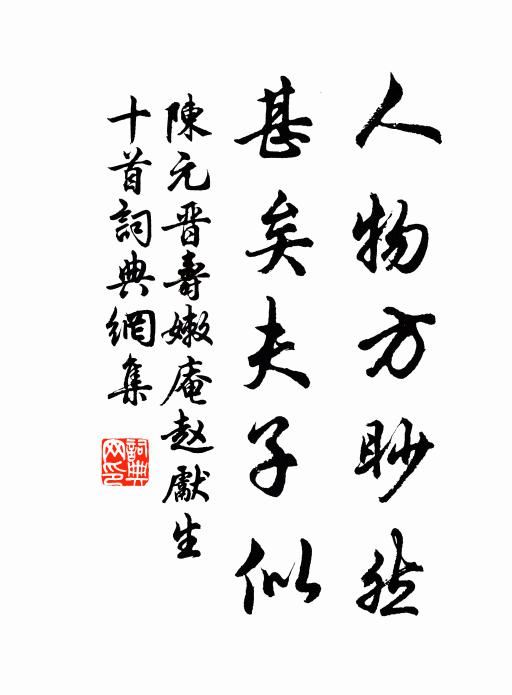 人物方眇然
甚矣夫子似
陳元晋壽嫩庵赵獻生
十首詞典網集
詞典网印